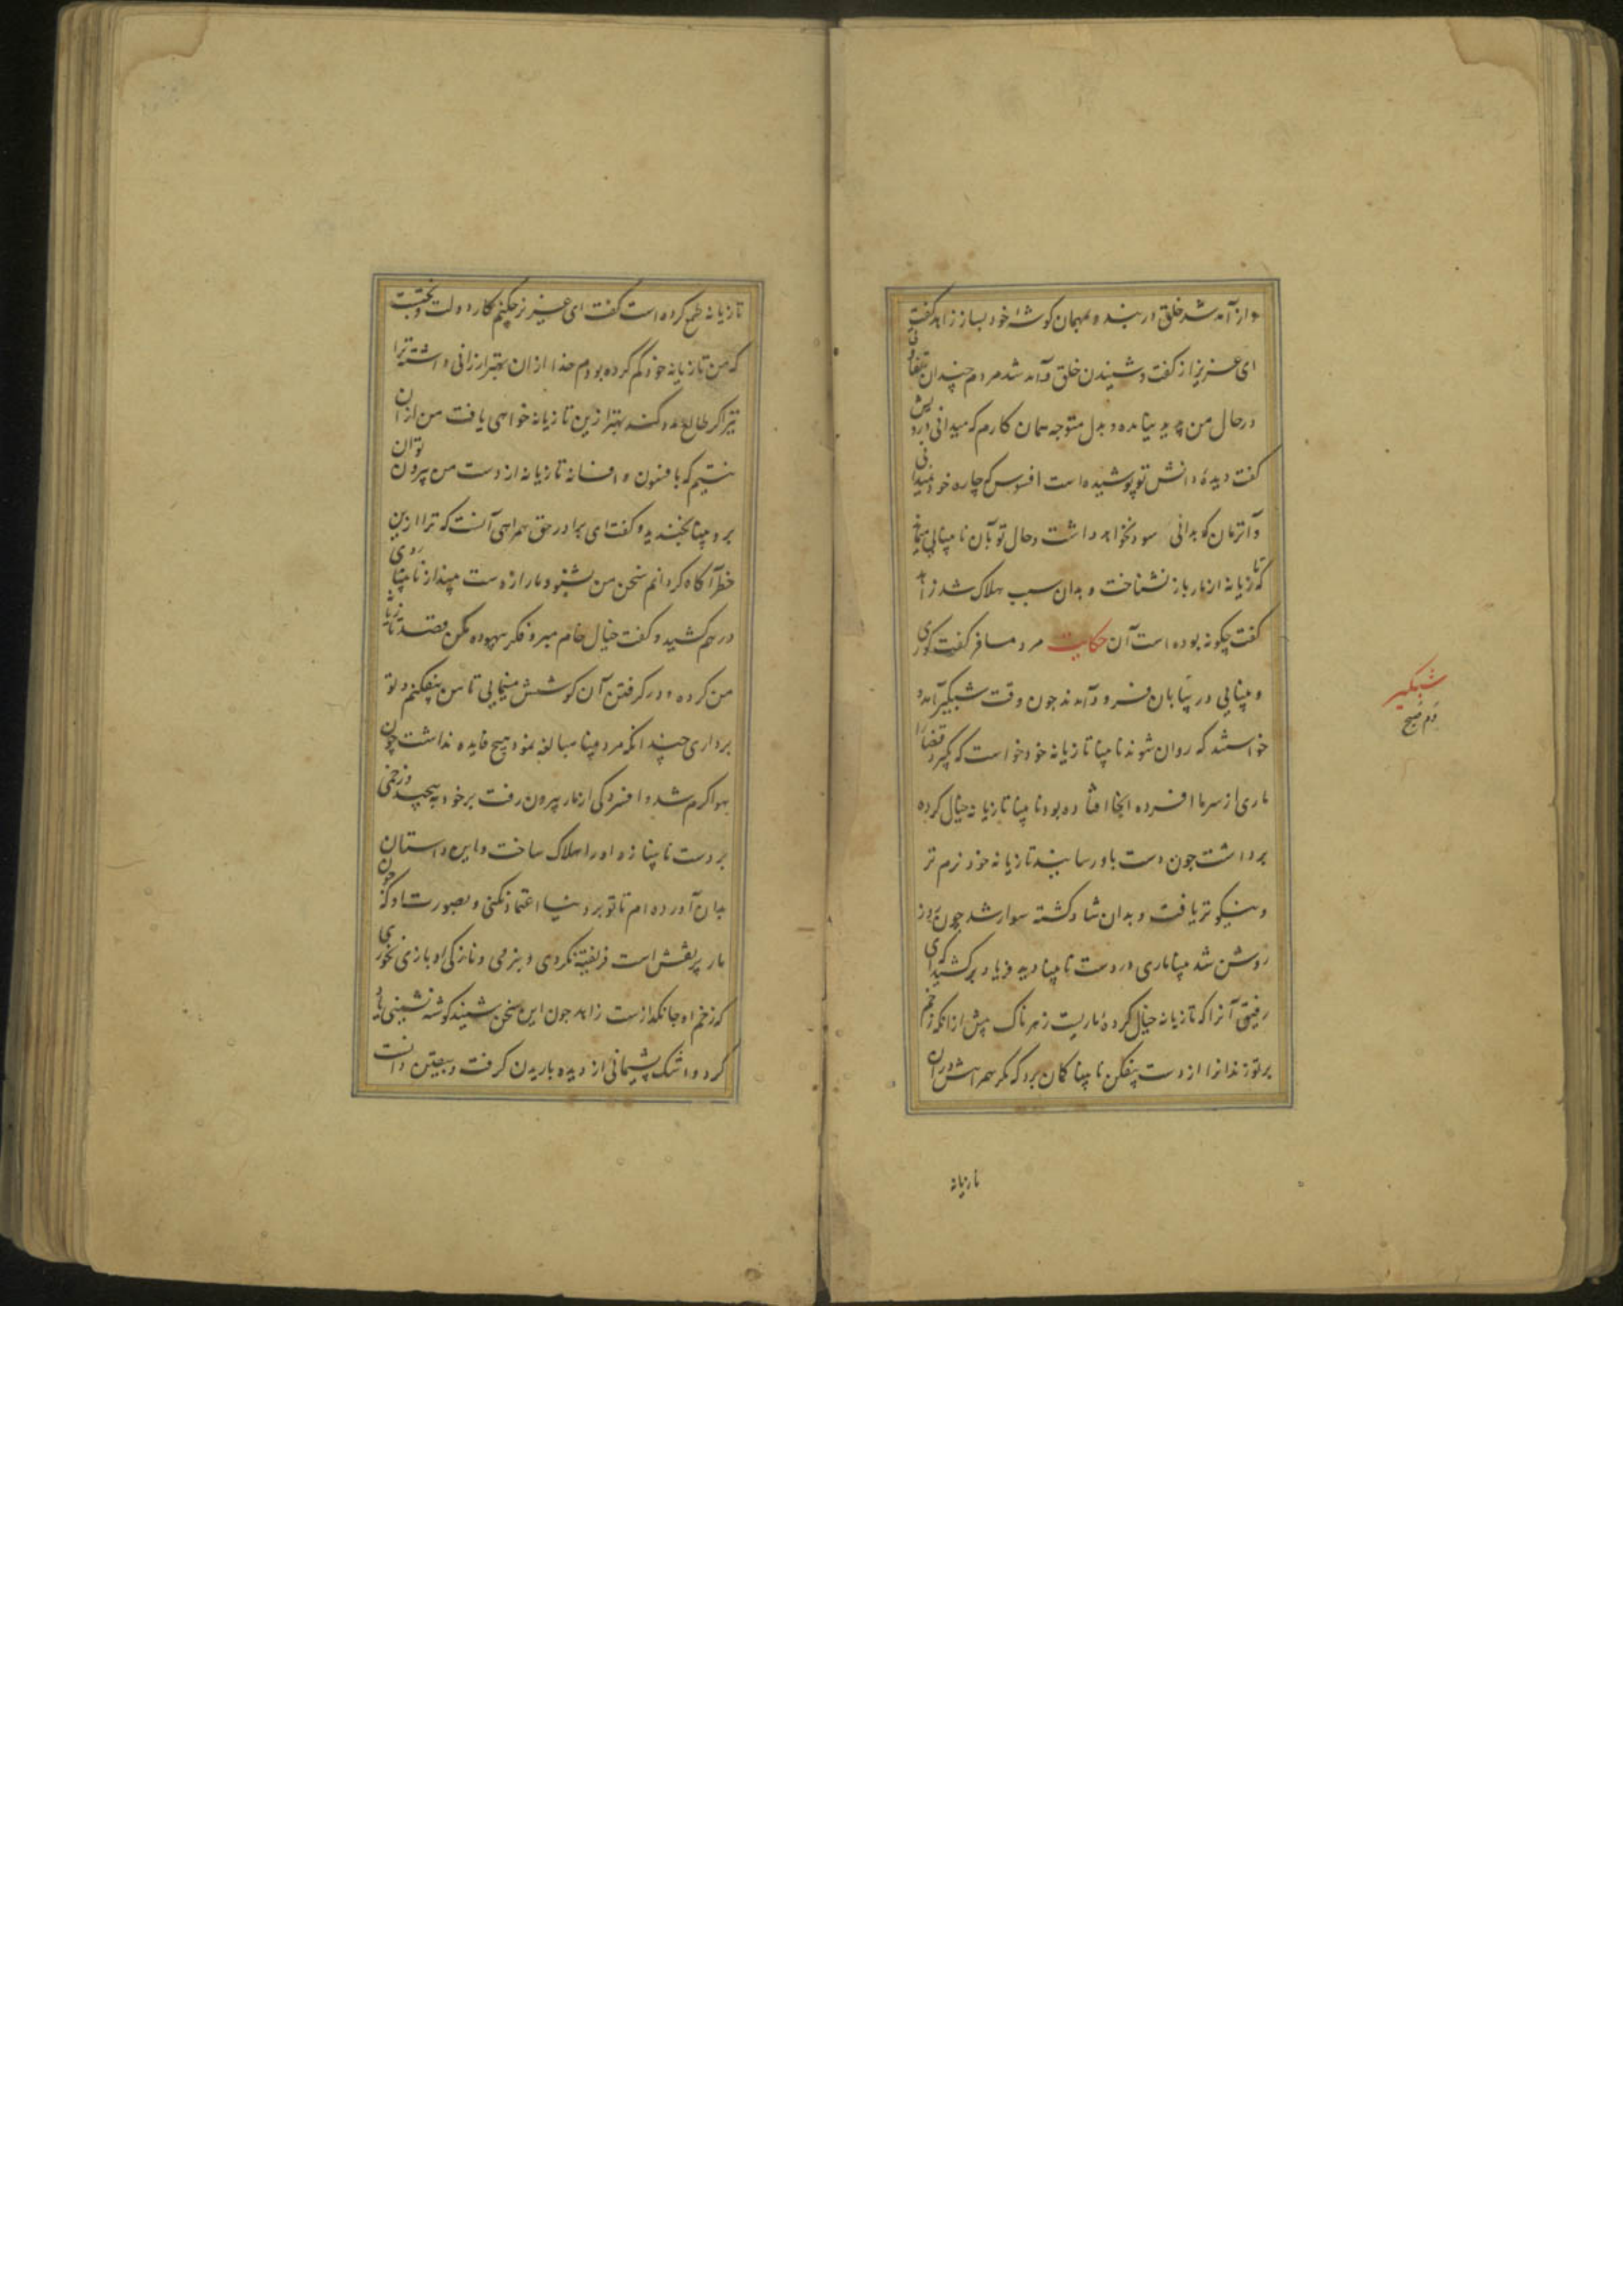 و از آمد شد خلق در بند و بمهمان کوشهٔ خود بساز زاهد کفت
ای عزیز از کفت و شنیدن خلق و آمد شد مردم چندان تفاوتی
در حال من پدید نیامده و بدل متوجه همان کارم که میدانی درویش
کفت دیدهٔ دانش تو پوشیده است افسوس که چاره خود نمیدانی
و آنزمان که بدانی سود نخواهد داشت و حال تو بآن نابینایی میماند
که تازیانه از مار باز نشناخت و بدان سبب هلاک شد زاهد
کفت چکونه بوده است آن حکایت مرد مسافر کفت کوری
و بینایی در بیابان فرود آمدند جون وقت شبکیر آمد و
خواستند که روان شوند نابینا تازیانه خود خواست که بکیرد قضا را
ماری از سرما افسرده آنجا افتاده بود نابینا تازیانه خیال کرده
برداشت جون دست باو رسانید تازیانه خود نرم تر
و نیکوتر یافت و بدان شاد کشته سوار شد جون روز
روشن شد بینا ماری در دست نابینا دید فریاد برکشید که ای
رفیق آنرا که تازیانه خیال کردهٔ ماریست زهرناک پیش از آنکه زخم
بر تو زند آنرا از دست بیفکن نابینا کمان برد که مکر همراهش در آن
تازیانه
شبکیر
دم صبح
تازیانه طمع کرده است کفت ای عزیز چکنم کار دولت و بختست
که من تازیانه خود کم کرده بودم خدا از آن بهتر ارزانی داشته ترا
نیز اکر طالع مدد کند بهتر ازین تازیانه خواهی یافت من از آن
نیستیم که بافسون و افسانه تازیانه از دست من بیرون توان
برد بینا بخندید و کفت ای برادر حق همراهی آنست که ترا ازین
خطر آکاه کردانم سخن من بشنو و مار از دست بینداز نابینا روی
درهم کشید و کفت خیال خام مبر و فکر بیهوده مکن قصد تازیانه
من کرده و در کرفتن آن کوشش مینمایی تا من بیفکنم و تو
برداری چندانکه مرد بینا مبالغه نمود هیچ فایده نداشت چون
هوا کرم شد و افسردکی از مار بیرون رفت بر خود پیچید و زخمی
بر دست نابینا زد و او را هلاک ساخت و این داستان
بدان آورده ام تا تو بر دنیا اعتماد نکنی و بصورت او که چون
مار پر نقش است فریفته نکردی و بنرمی و نازکی او بازی نخوری
که زخم او جانکدازست زاهد جون این سخن شنید کوشه نشینی یاد
کرد و اشک پشیمانی از دیده باریدن کرفت و بیقین دانست